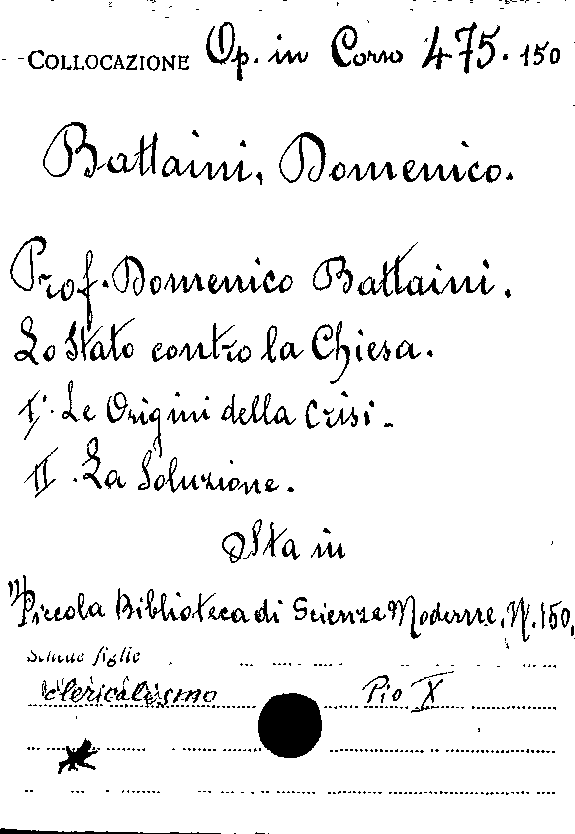 COLLOCAZIONE Op. in Corso 475.150
Battaini, Domenico.
Prof. Domenico Battaini.
Lo Stato contro la Chiesa.
I. Le Origini della Crisi.
II. La Soluzione.
Sta in
"Piccola Biblioteca di Scienze Moderne, N. 150.
Schede figlie
Clericalismo Pio X